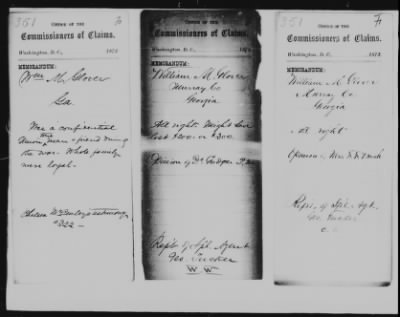 351
OFFICE OF THE
Commissioners of Claims.
Washington, D. C., 1873
MEMORANDUM:
Wm M. Glover
Ga.
Was a confidential
Union man & friend during
the war. Whole family
were loyal.
testimony
#322 —
OFFICE OF THE
Commissioners of Claims.
Washington, D. C., 187
MEMORANDUM:
William M. Glover
Murray Co
Georgia
All right. Might have
lost $200. or $300.
Opinion of
Rep't of Spl. Agent
Geo. Tucker
W W
351
OFFICE OF THE
Commissioners of Claims.
Washington, D. C., 1873
MEMORANDUM:
William M. Glover
Murray Co.
Georgia
All right
Opinion of
Rep't. of Spl. Agt.
Geo. Tucker